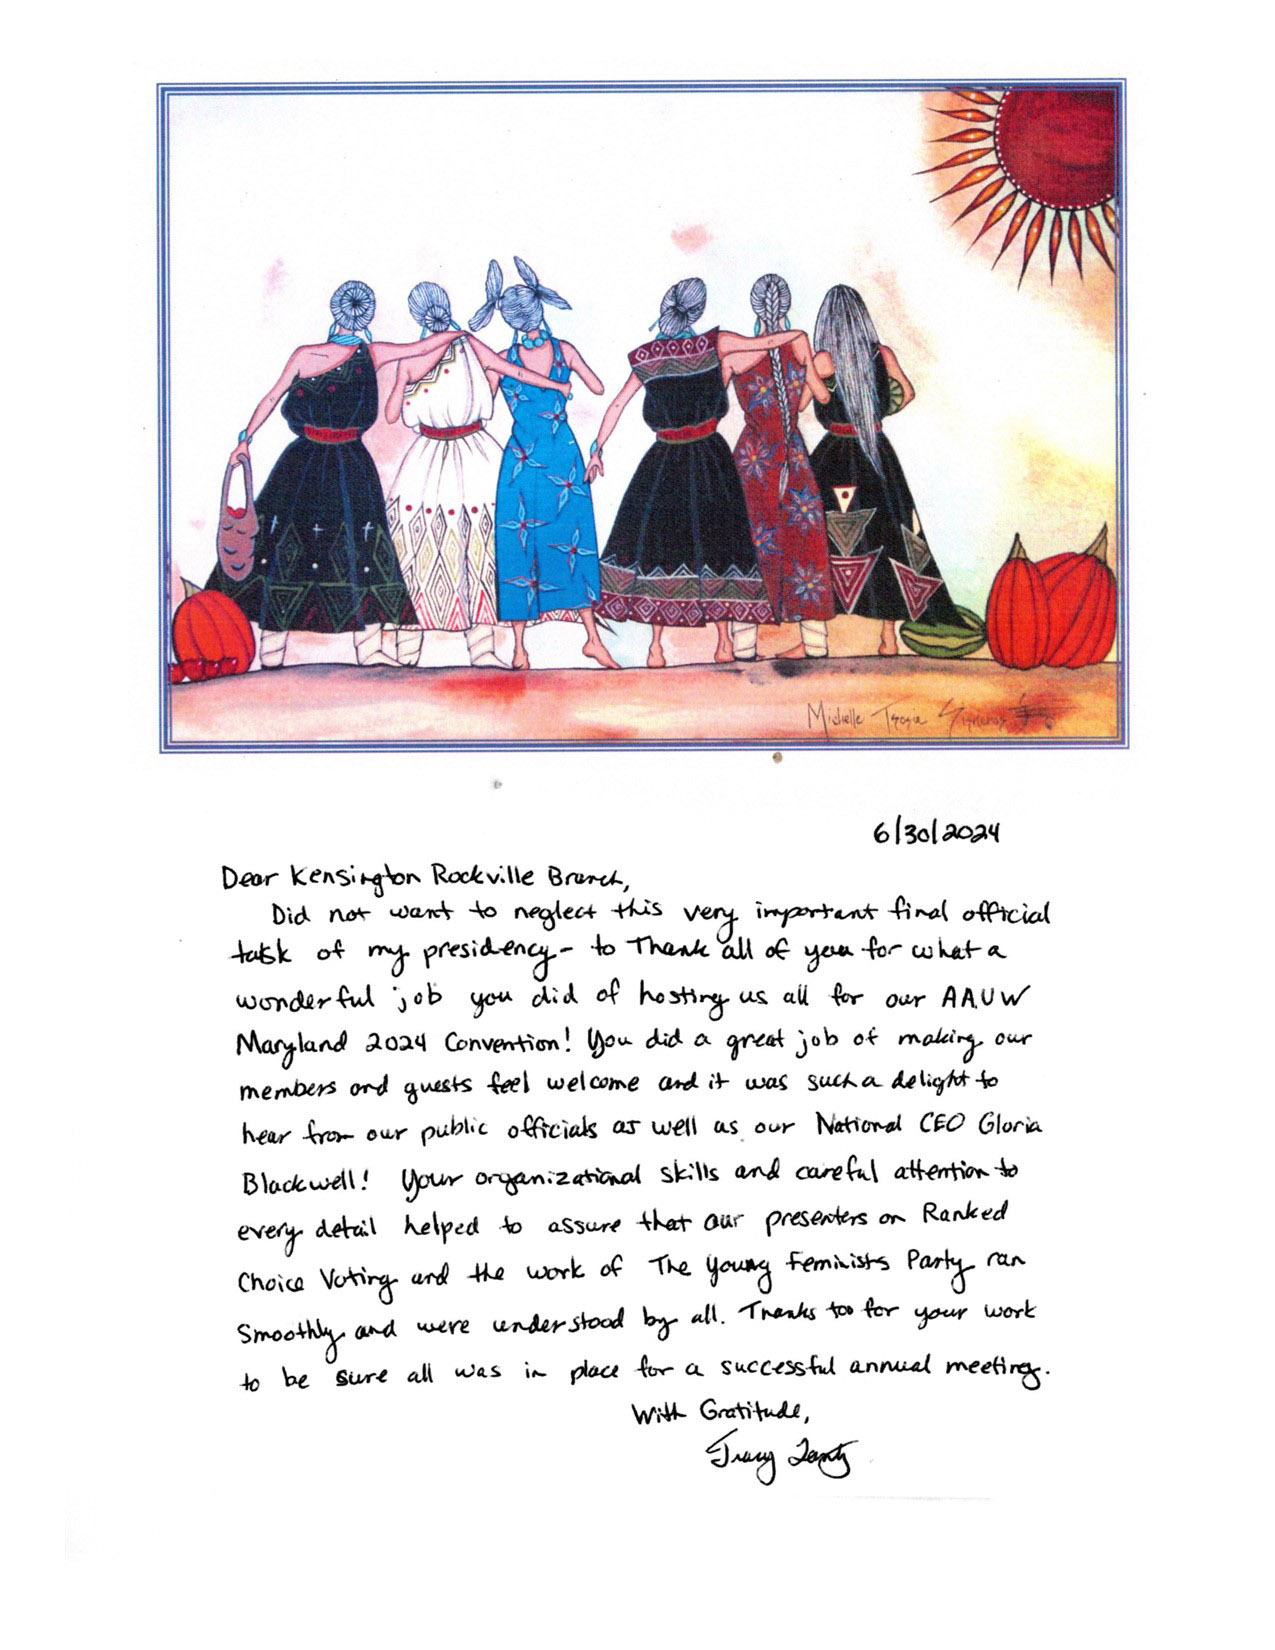 Michelle Tsosie Sisneros
6/30/2024
Dear Kensington Rockville Branch,
Did not want to neglect this very important final official
task of my presidency - to Thank all of you for what a
wonderful job you did of hosting us all for our AAUW
Maryland 2024 Convention! You did a great job of making our
members and guests feel welcome and it was such a delight to
hear from our public officials as well as our National CEO Gloria
Blackwell! Your organizational skills and careful attention to
every detail helped to assure that our presenters on Ranked
Choice Voting and the work of The Young Feminists Party ran
smoothly and were understood by all. Thanks too for your work
to be sure all was in place for a successful annual meeting.
With Gratitude,
Tracy Lantz